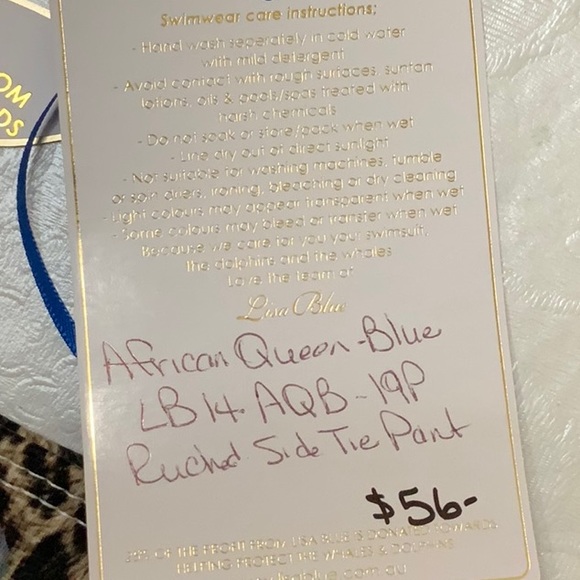 OM
DS
Swimwear care instructions:
- Hand wash seperately in cold water
with mild detergent
- Avoid contact with rough surfaces, suntan
lotions, oils & pools/spas treated with
harsh chemicals
- Do not soak or store/pack when wet
- Line dry out of direct sunlight
- Not suitable for washing machines, tumble
or spin driers, ironing, bleaching or dry cleaning
- Light colours may appear transparent when wet
- Some colours may bleed or transfer when wet
Because we care for you your swimsuit,
the dolphins and the whales
Love the team at
Lisa Blue
African Queen - Blue
LB14-AQB-19P
Ruched Side Tie Pant
$56-
OF THE PROFIT FROM LISA BLUE IS DONATED TOWARDS
HELPING PROTECT THE WHALES & DOLPHINS